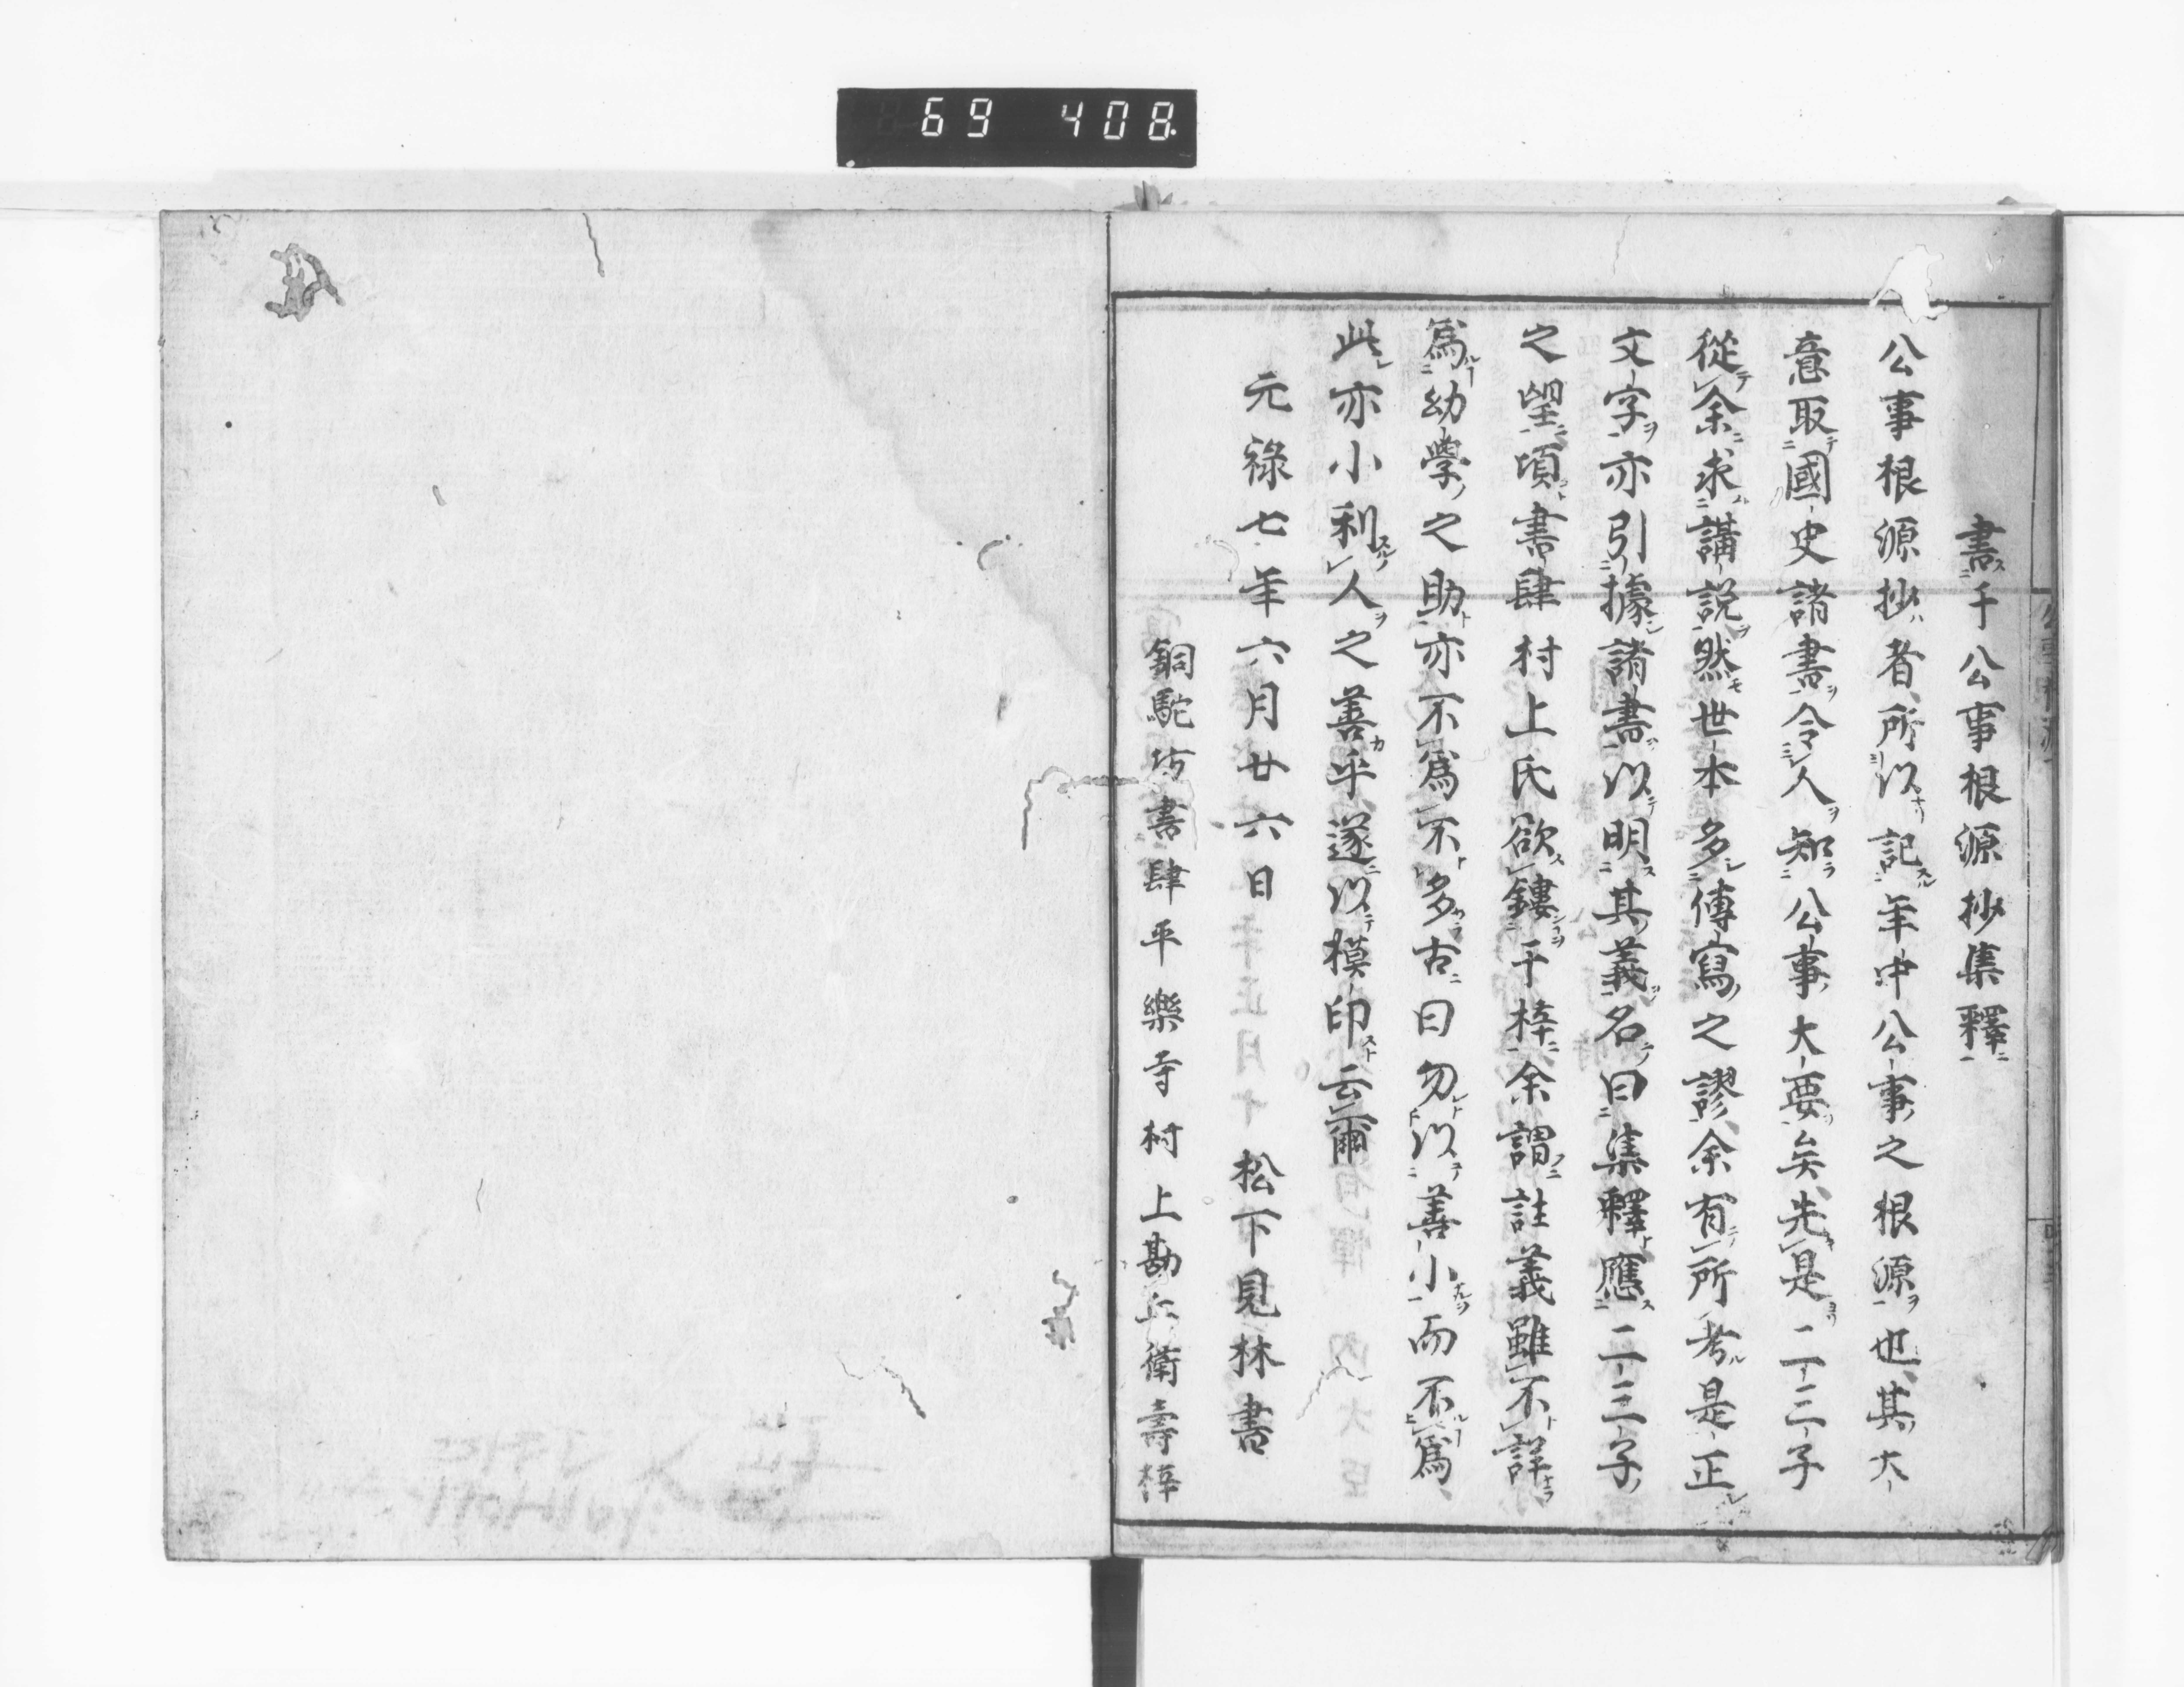 69 408
書于公事根源抄集釋
公事根源抄者所以記年中公事之根源也其大
意取國史諸書令人知公事大要矣先是二三子
從余求講說然世本多傳寫之謬余有所考是正
文字亦引據諸書以明其義名曰集釋應二三子
之望頃書肆村上氏欲鏤于梓余謂註義雖不詳
爲幼學之助亦不爲不多古曰勿以善小而不爲
此亦小利人之善乎遂以模印云爾
元祿七年六月廿六日　松下見林書
銅駝坊書肆平樂寺村上勘兵衛壽梓